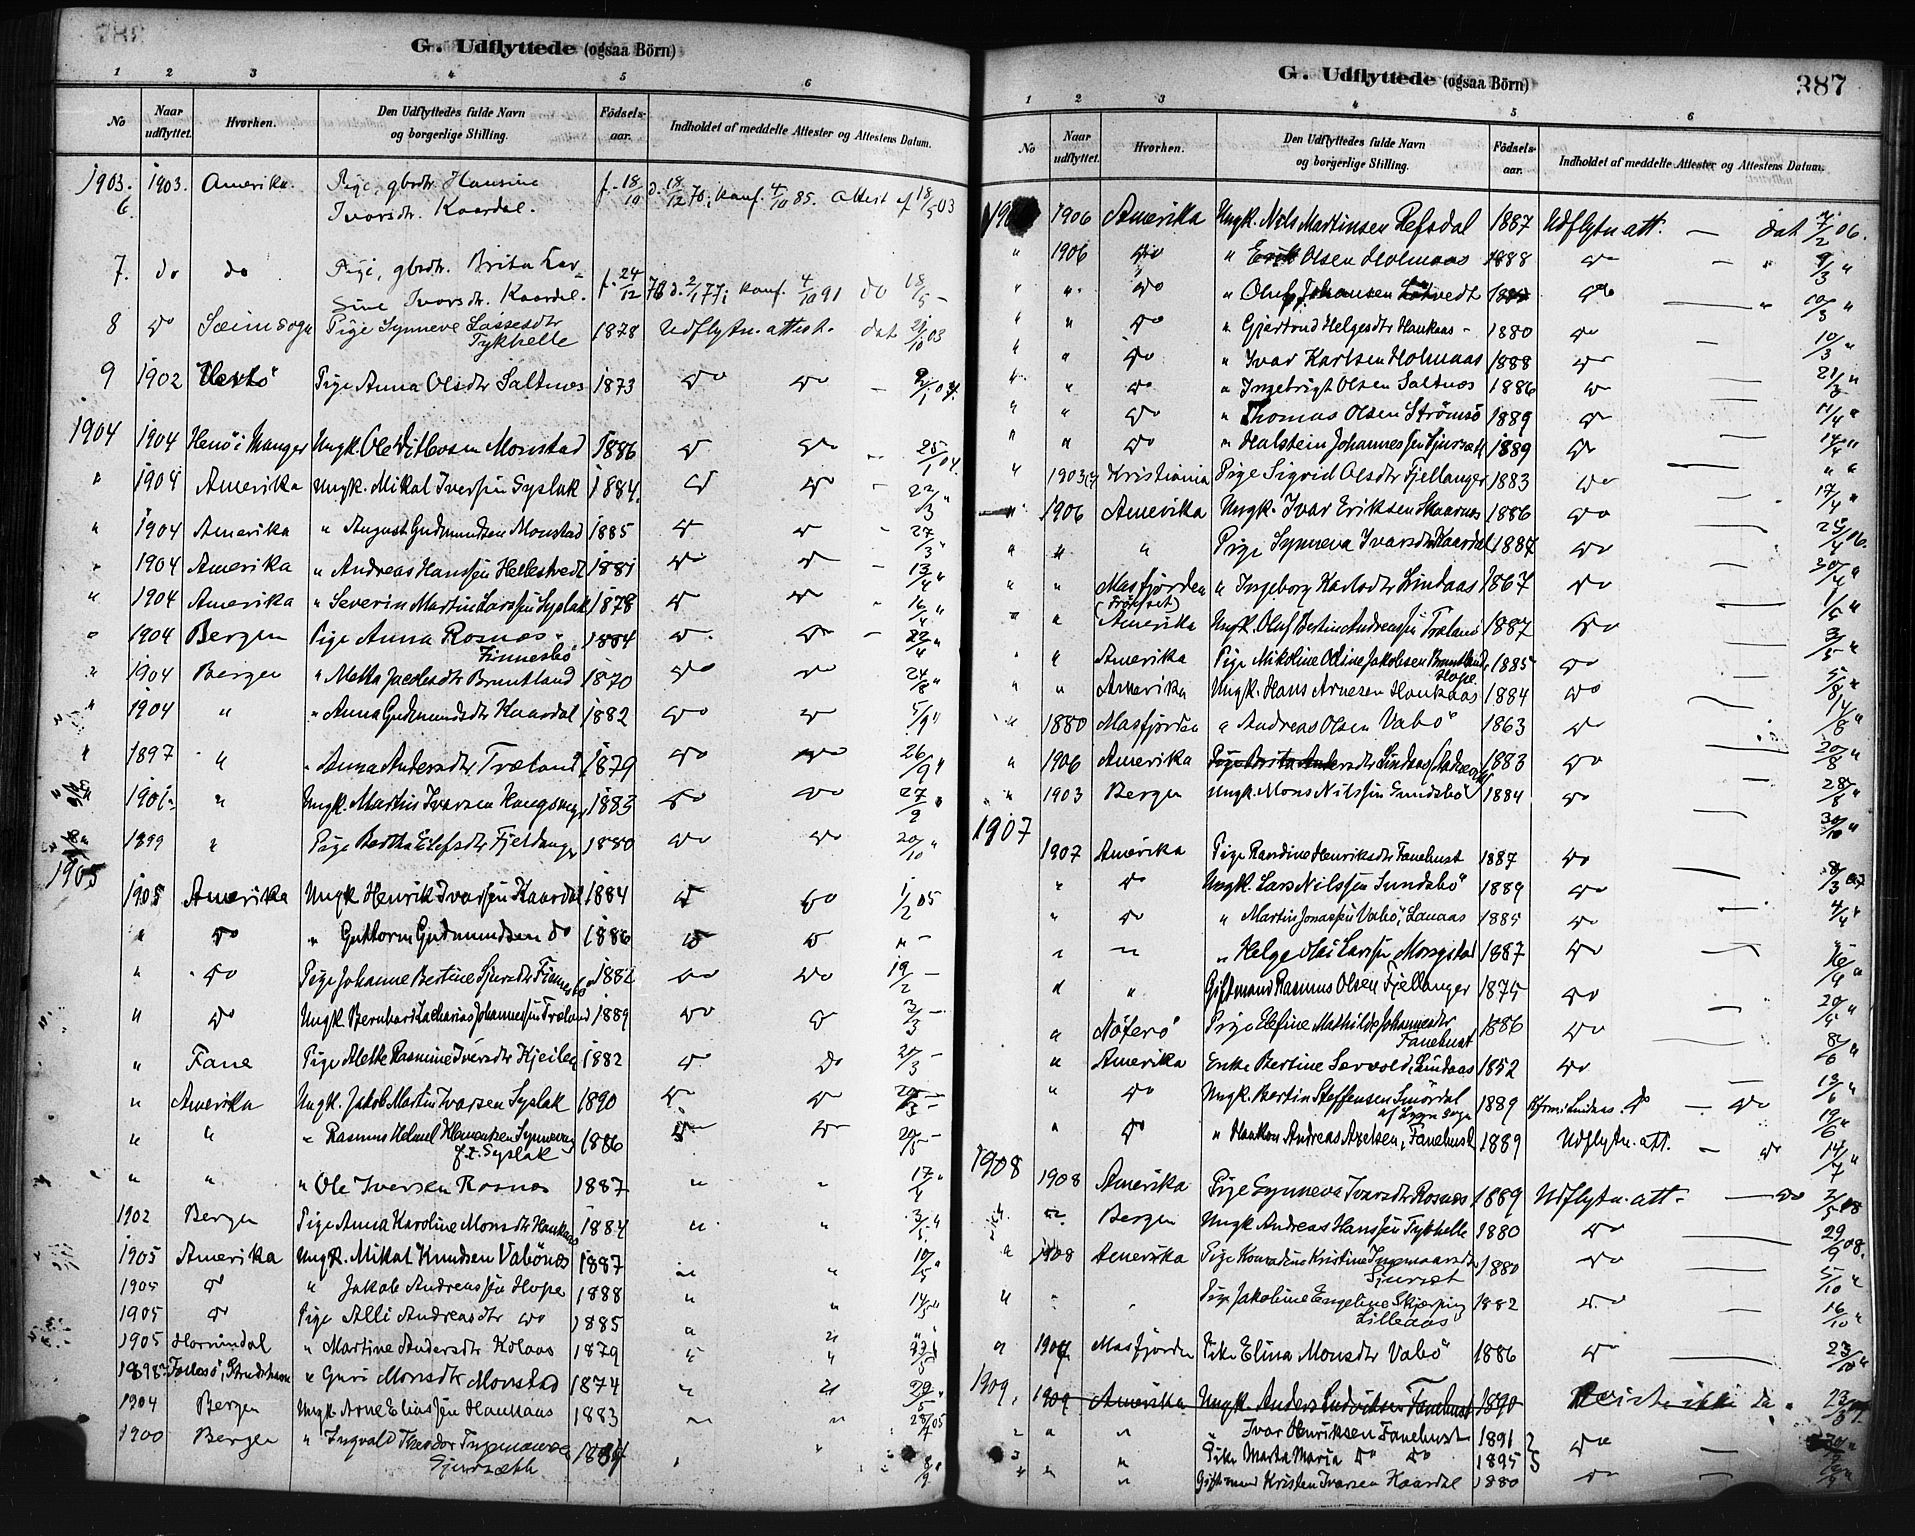 G. Udflyttede (ogsaa Börn)
1 2 3 4 5 6
No Naar udflyttet. Hvorhen. Den Udflyttedes fulde Navn og borgerlige Stilling. Födsels-aar. Indholdet af meddelte Attester og Attestens Datum.
1903. 6. 1903. Amerika. Pige, gbrdtr. Hansine
Ivarsdr. Kaardal. f. 18/10 d. 18/12 70; konf. 4/10 85. Attest af 18/5 03
7. do do Pige, gbrdtr. Brita
Ivarsdr. Kaardal. f. 24/12 76 d. 2/1 77; konf. 4/10 91 do 18/5 –
8 do Sæim sogn Pige Synneve Lassesdtr
Tykhelle 1878 Udflytn. attest. dat 21/10 03
9 1902 Herlö Pige Anna Olsdtr Saltnes 1873 do do – 9/1 04.
1904 1904 Henö i Manger Ungk. Ole Ditlevsen Monstad 1886 do do 25/1 04.
" 1904 Amerika Ungk. Mikal Iverssen Syslak 1884. do do – 22/3 "
" 1904 Amerika " August Gudmundsen Monstad 1885 do do – 27/3 "
" 1904 Amerika " Andreas Hanssen Hellestvedt 1881 do do – 13/4 "
" 1904 Amerika " Severin Martin Larssen Syslak 1878 do do " 16/4 "
" 1904 Bergen Pige Anna Rosnæs
Finnesbö 1884 do do – 22/4 "
" 1904 Bergen " Metta Jacobsdtr Bruntland 1870 do do 24/8 "
" 1904 " " Anna Gudmundsdtr Kaardal 1882 do do 5/9 "
" 1897 " " Anna Andersdtr Træland 1879 do do 26/9 "
" " Ungk. Martin Ivarsen Haugsmyr 1883 do do 27/9 "
1899 " Pige Bertha Elefsdtr Fjellanger 1880 do do 20/10 "
1905
1905 Amerika Ungk Henrik Ivarssen Kaardal 1884 do do 1/2 05
" do " Guttorm Gudmundsen do 1886 do do " –
" do Pige Johanne Bertine Sjursdtr Finnesbö 1882 do do 19/2 –
" do Ungk. Bernhard Zacharias Johannessen Træland 1889 do do 3/3 –
" Fane Pige Alette Rasmine Iversdtr Kjeilen 1882 do do 20/3 –
" Amerika Ungk. Jakob Martin Ivarsen Syslak 1890 do do 20/3 –
" " " Rasmus Helmel Klementsen Synnevaag
f.t. Syslak 1886 do do 20/3 –
" " " Ole Iversen Rosnes 1887 " " 17/4 "
1902 Bergen Pige Anna Karoline Monsdtr Haukaas 1884 " " 3/5 "
1905 Amerika Ungk. Mikal Knudsen Vabönes 1887 " " 10/5 "
1905 do " Jakob Andreassen Hope 1888 " " 14/5 "
1905 do Pige Alli Andreasdtr do 1885 " " " "
1905 Hornindal " Martine Andersdtr Kolaas 1879 " "
" Guri Monsdtr Monstad 1874 " " 29/5 "
1904 Bergen Ungk Arne Eliassen Haukaas 1883 " " 28/7 05
1900 Bergen " Ingvald Theodor Ingemarsen
Sjursæth

G. Udflyttede (ogsaa Börn) 387
1 2 3 4 5 6
No Naar udflyttet. Hvorhen. Den Udflyttedes fulde Navn og borgerlige Stilling. Födsels-aar. Indholdet af meddelte Attester og Attestens Datum.
1906 Amerika Ungk. Nils Martinsen Refsdal 1887 Udflytn att. – dat 7/2 06.
" 1906 do " Erik Olsen Holmaas 1888 do – " 9/3 "
" " do " Oluf Johansen Lötvedt do – " 10/3 "
" " do " Gjertrud Helgesdtr Haukaas – 1880 do 10/3 "
" " do " Ivar Karlsen Holmaas 1888 do — 21/3 "
" " do " Ingebrigt Olsen Saltnes 1886 do
" " do " Thomas Olsen Strömsö 1889 do 11/4 "
" " do " Halstein Johannessen Sjursæth 1889 do 14/4 "
" 1903 Kristiania Pige Sigrid Olsdtr Fjellanger 1883 do — " "
" 1906 Amerika Ungk. Ivar Eriksen Skaarnes 1886 do — 17/4 "
" " " Pige Synneva Ivarsdtr Kaardal 1887 do 25/4 06.
" " Masfjorden " Ingeborg Karlsdtr Lindaas 1867 do 30/4 "
(Fröyset)
" " Amerika Ungk. Oluf Bertin Andreassen Træland 1887 do 1/5 "
" " Amerika Pige Nikoline Oline Jakobsen Bruntland,
Hope 1885 do 3/5 "
" " Amerika Ungk. Hans Arnesen Haukaas 1884 do
" 1880 Masfjorden " Andreas Olsen Vabö 1863 do 14/8 "
" 1906 Amerika Pige Brita Andersdtr Lindaas 1883 do — 20/8 "
" 1903 Bergen Ungk. Mons Nilssen Sundsbö 1884 do — 28/8 "
1907 30/10 "
1907 Amerika Pige Rasdine Henriksdtr Fanebust 1887 do
" do Ungk. Lars Nilssen Sundsbö 1889 do — 8/3 07
" do " Martin Jonassen Vabö, Lauaas 1885 do 4/4 "
" " " Helge Olai Larssen Mongstad 1887 do —
" " Giftmand Rasmus Olsen Fjellanger 1875 do
" Nöterö Pige Elefine Mathilde Johannesdtr
Fanebust 1886 do 20/4 "
" Amerika Enke Bertine Sævold, Lindaas 1852 do 8/6 "
" do Ungk. Bertin Steffensen Smördal
af Lygre sogn 1889 do – do 13/6 "
" do " Haakon Andreas Axelsen, Fanebust 1889 Udflytn. att. – do 19/6 "
1908 14/7 "
1908 Amerika Pige Synneva Ivarsdtr Rosnes 1889 Udflytn. att. – do 2/5 08
" Bergen Ungk Andreas Hanssen Tykhelle 1880 do 29/9 08.
" 1908 Amerika Pige Konradine Kristine Ingemaarsdtr
Sjursæt 1880 do 5/10 "
" " " Pige Jakobine Engeline Skjerping
Lilleaas 1882 do — 16/10 "
" Masfjorden Pike Elina Monsdtr Vabö 1886 do — 23/10 "
1909. 1909 Amerika Ungk. Anders Ludvik Fanebust 1890 Reiste ikke
" " " Ivar Henriksen Fanebust 1891 do
" " Pike Marta Maria do do 1895
" " Giftmand Kristen Ivarsen Kaardal 1880 do